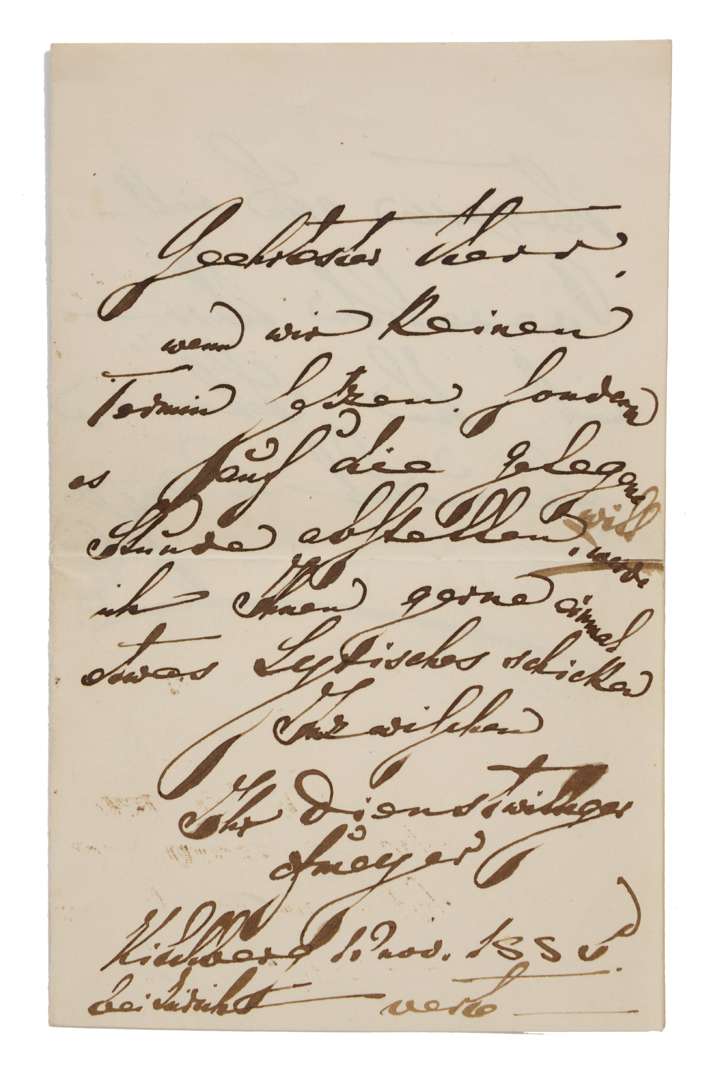 Geehrtester Herr,
wenn wir keinen
Termin setzen, sondern
es auf die gelegene
Stunde abstellen, will
werde
ich Ihnen gerne einmal
etwas Lyrisches schicken
Inzwischen
Ihr dienstwilliger
CFMeyer
Kilchberg 12 nov. 188
bei Zürich
verte